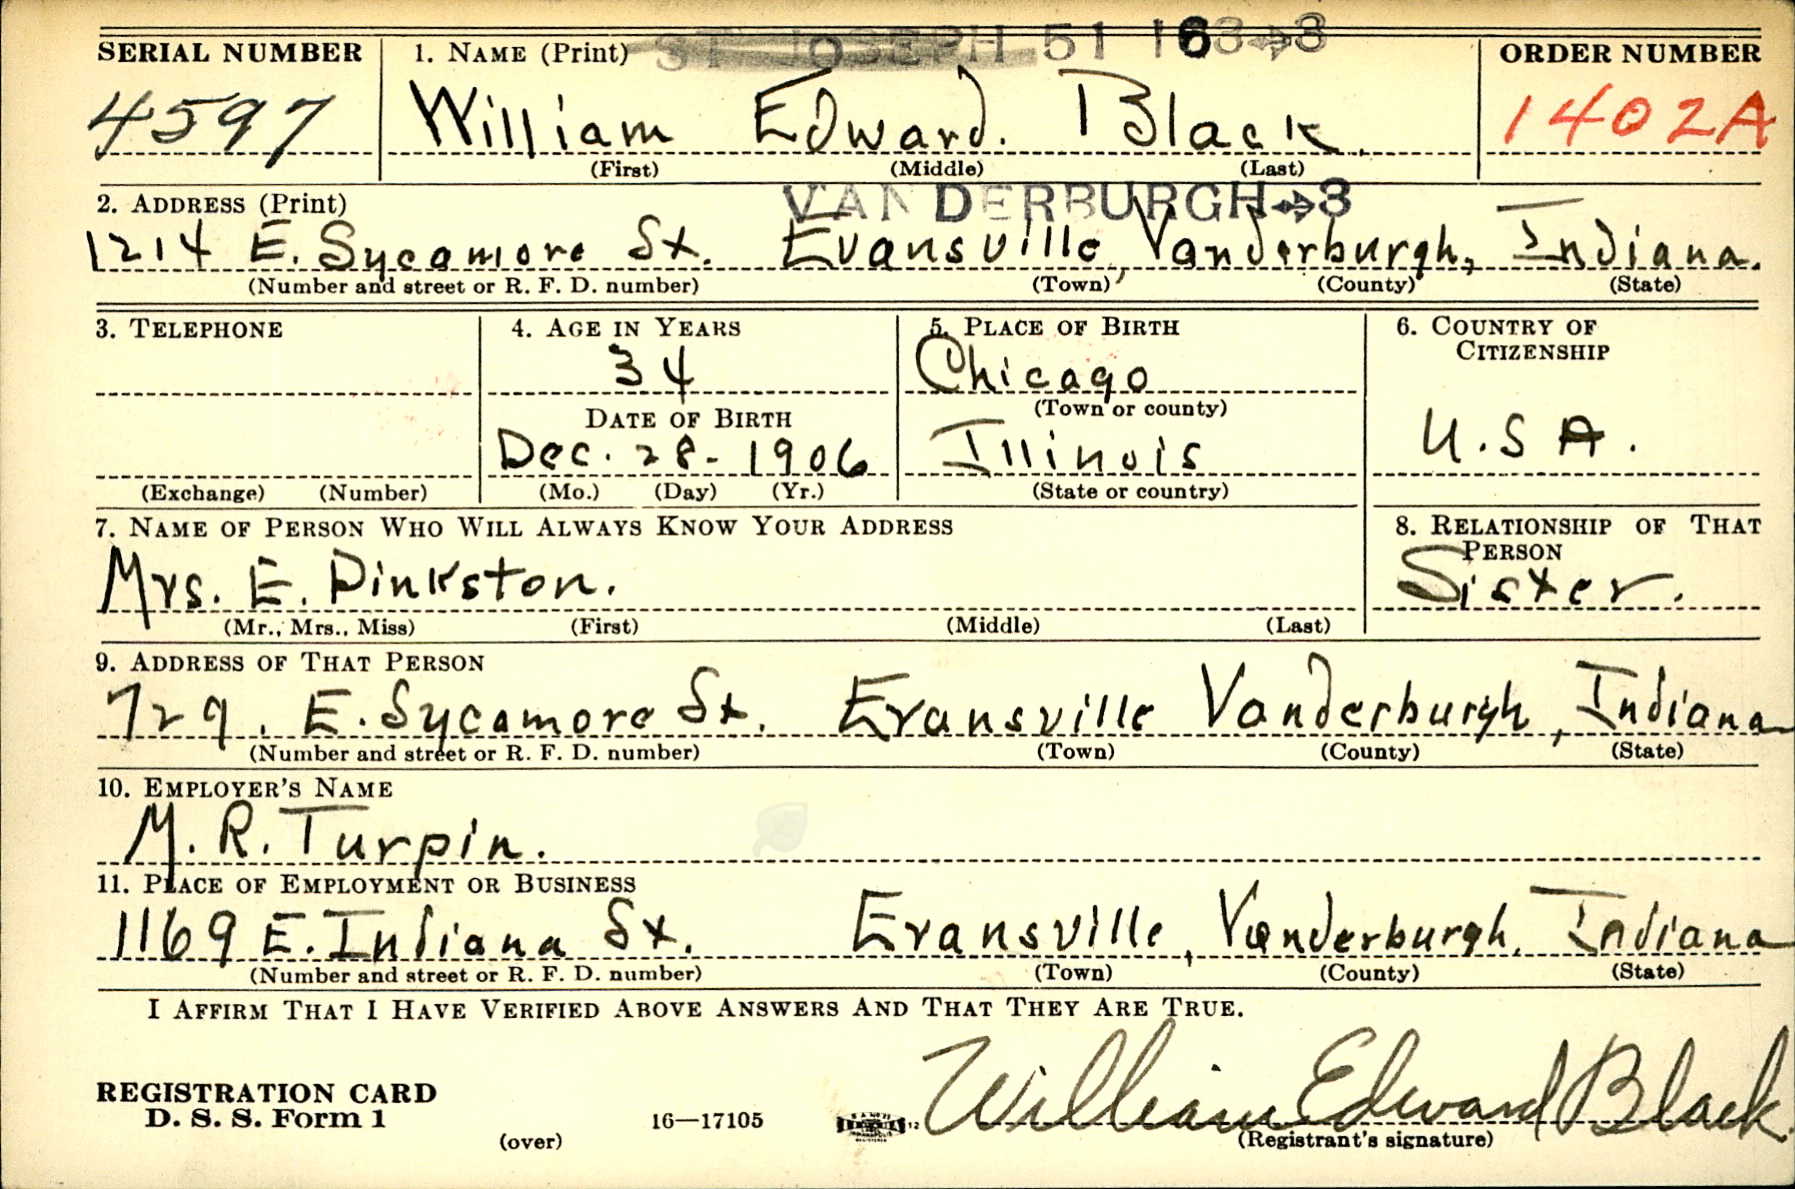 ST JOSEPH 51 163→3
SERIAL NUMBER
1. NAME (Print)
ORDER NUMBER
4597
William Edward. Black.
1402A
(First) (Middle) (Last)
2. ADDRESS (Print)
VANDERBURGH→3
1214 E. Sycamore St. Evansville, Vanderburgh, Indiana.
(Number and street or R. F. D. number) (Town) (County) (State)
3. TELEPHONE
4. AGE IN YEARS
5. PLACE OF BIRTH
6. COUNTRY OF
CITIZENSHIP
34
Chicago
(Town or county)
DATE OF BIRTH
U.S A.
Dec. 28 - 1906
Illinois
(Exchange) (Number)
(Mo.) (Day) (Yr.)
(State or country)
7. NAME OF PERSON WHO WILL ALWAYS KNOW YOUR ADDRESS
8. RELATIONSHIP OF THAT
PERSON
Mrs. E. Pinkston.
Sister.
(Mr., Mrs., Miss) (First) (Middle) (Last)
9. ADDRESS OF THAT PERSON
729. E. Sycamore St. Evansville Vanderburgh, Indiana
(Number and street or R. F. D. number) (Town) (County) (State)
10. EMPLOYER'S NAME
M. R. Turpin.
11. PLACE OF EMPLOYMENT OR BUSINESS
1169 E. Indiana St. Evansville, Vanderburgh, Indiana
(Number and street or R. F. D. number) (Town) (County) (State)
I AFFIRM THAT I HAVE VERIFIED ABOVE ANSWERS AND THAT THEY ARE TRUE.
REGISTRATION CARD
D. S. S. Form 1
(over)
16—17105
12
William Edward Black.
(Registrant's signature)